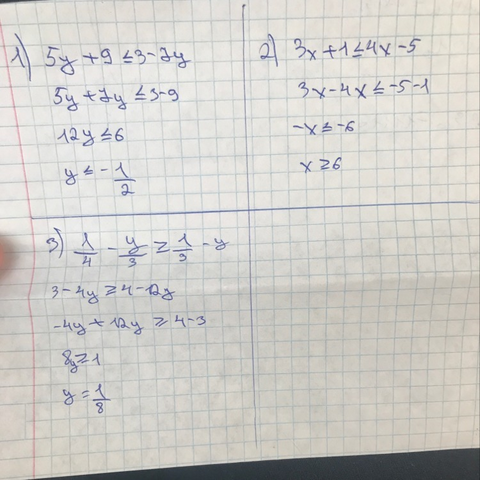 1) 5y + 9 ≤ 3 - 7y
5y + 7y ≤ 3 - 9
12y ≤ 6
y ≤ - 1/2
2) 3x + 1 ≤ 4x - 5
3x - 4x ≤ -5 - 1
-x ≤ -6
x ≥ 6
3) 1/4 - y/3 ≥ 1/3 - y
3 - 4y ≥ 4 - 12y
-4y + 12y ≥ 4 - 3
8y ≥ 1
y = 1/8